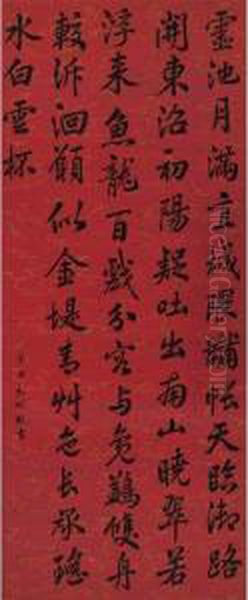 靈池月滿直城隈黼帳天臨御路
開東沼初陽疑吐出南山曉翠若
浮来魚龍百戲分容与鳧鷁雙舟
較泝洄願似金堤青草色長承瑶
水白雲杯